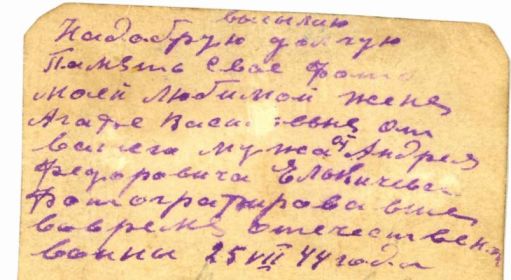 высылаю
На добрую долгую
Память свае фото
моей любимой жене
Агафе Васильевне от
вашего мужа от Андрея
Федоровича
Фотографирова вше
вовремя отечествен
воины 25 VIII 44 года